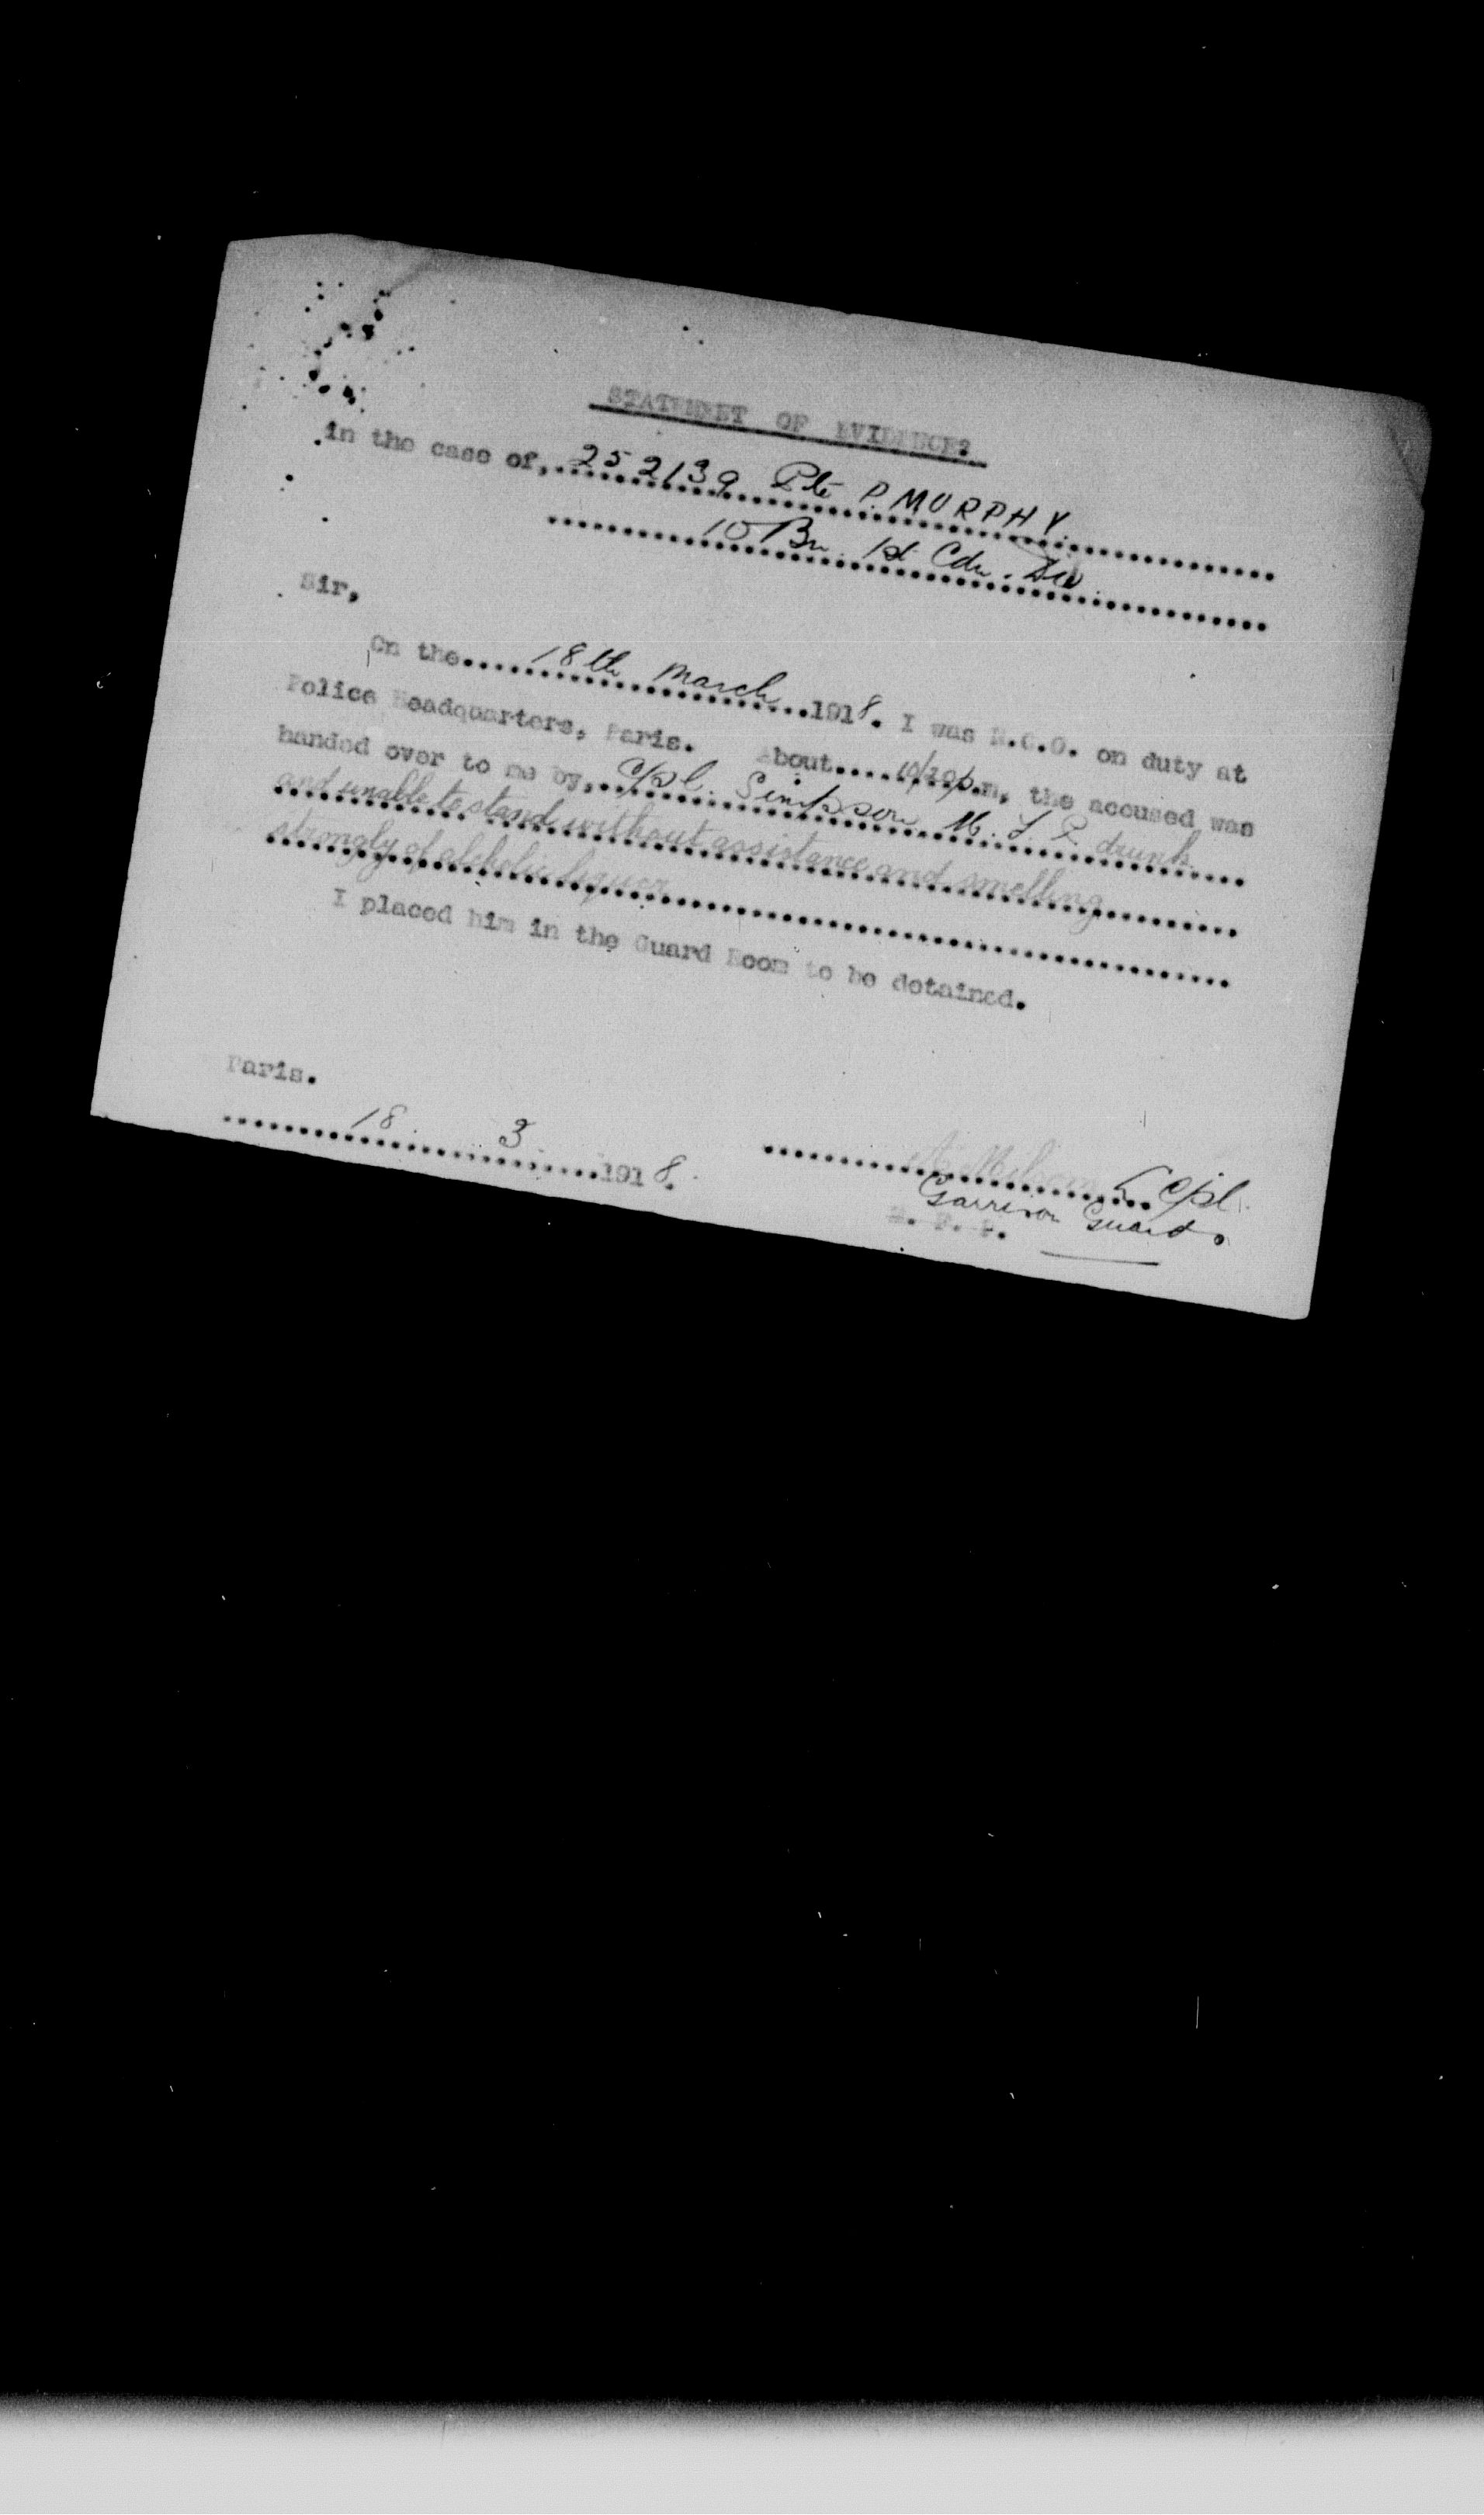 STATEMENT OF EVIDENCE?
in the case of, 252139 Pte P. MURPHY.
10 Bn. 1st Cdn. Div.
Sir,
On the 18th March 1918. I was N.C.O. on duty at
Police Headquarters, Paris. About 10/30 p.m, the accused was
handed over to me by, Cpl. Simpson M.F.P. drunk
and unable to stand without assistance and smelling
strongly of alcholic liquor
I placed him in the Guard Room to be detained.
Paris.
18. 3. 1918.
L Cpl.
Garrison Guard.
M. F. P.